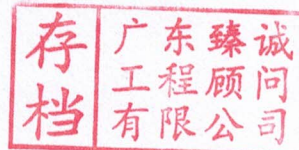 存档
广东臻诚
工程顾问
有限公司